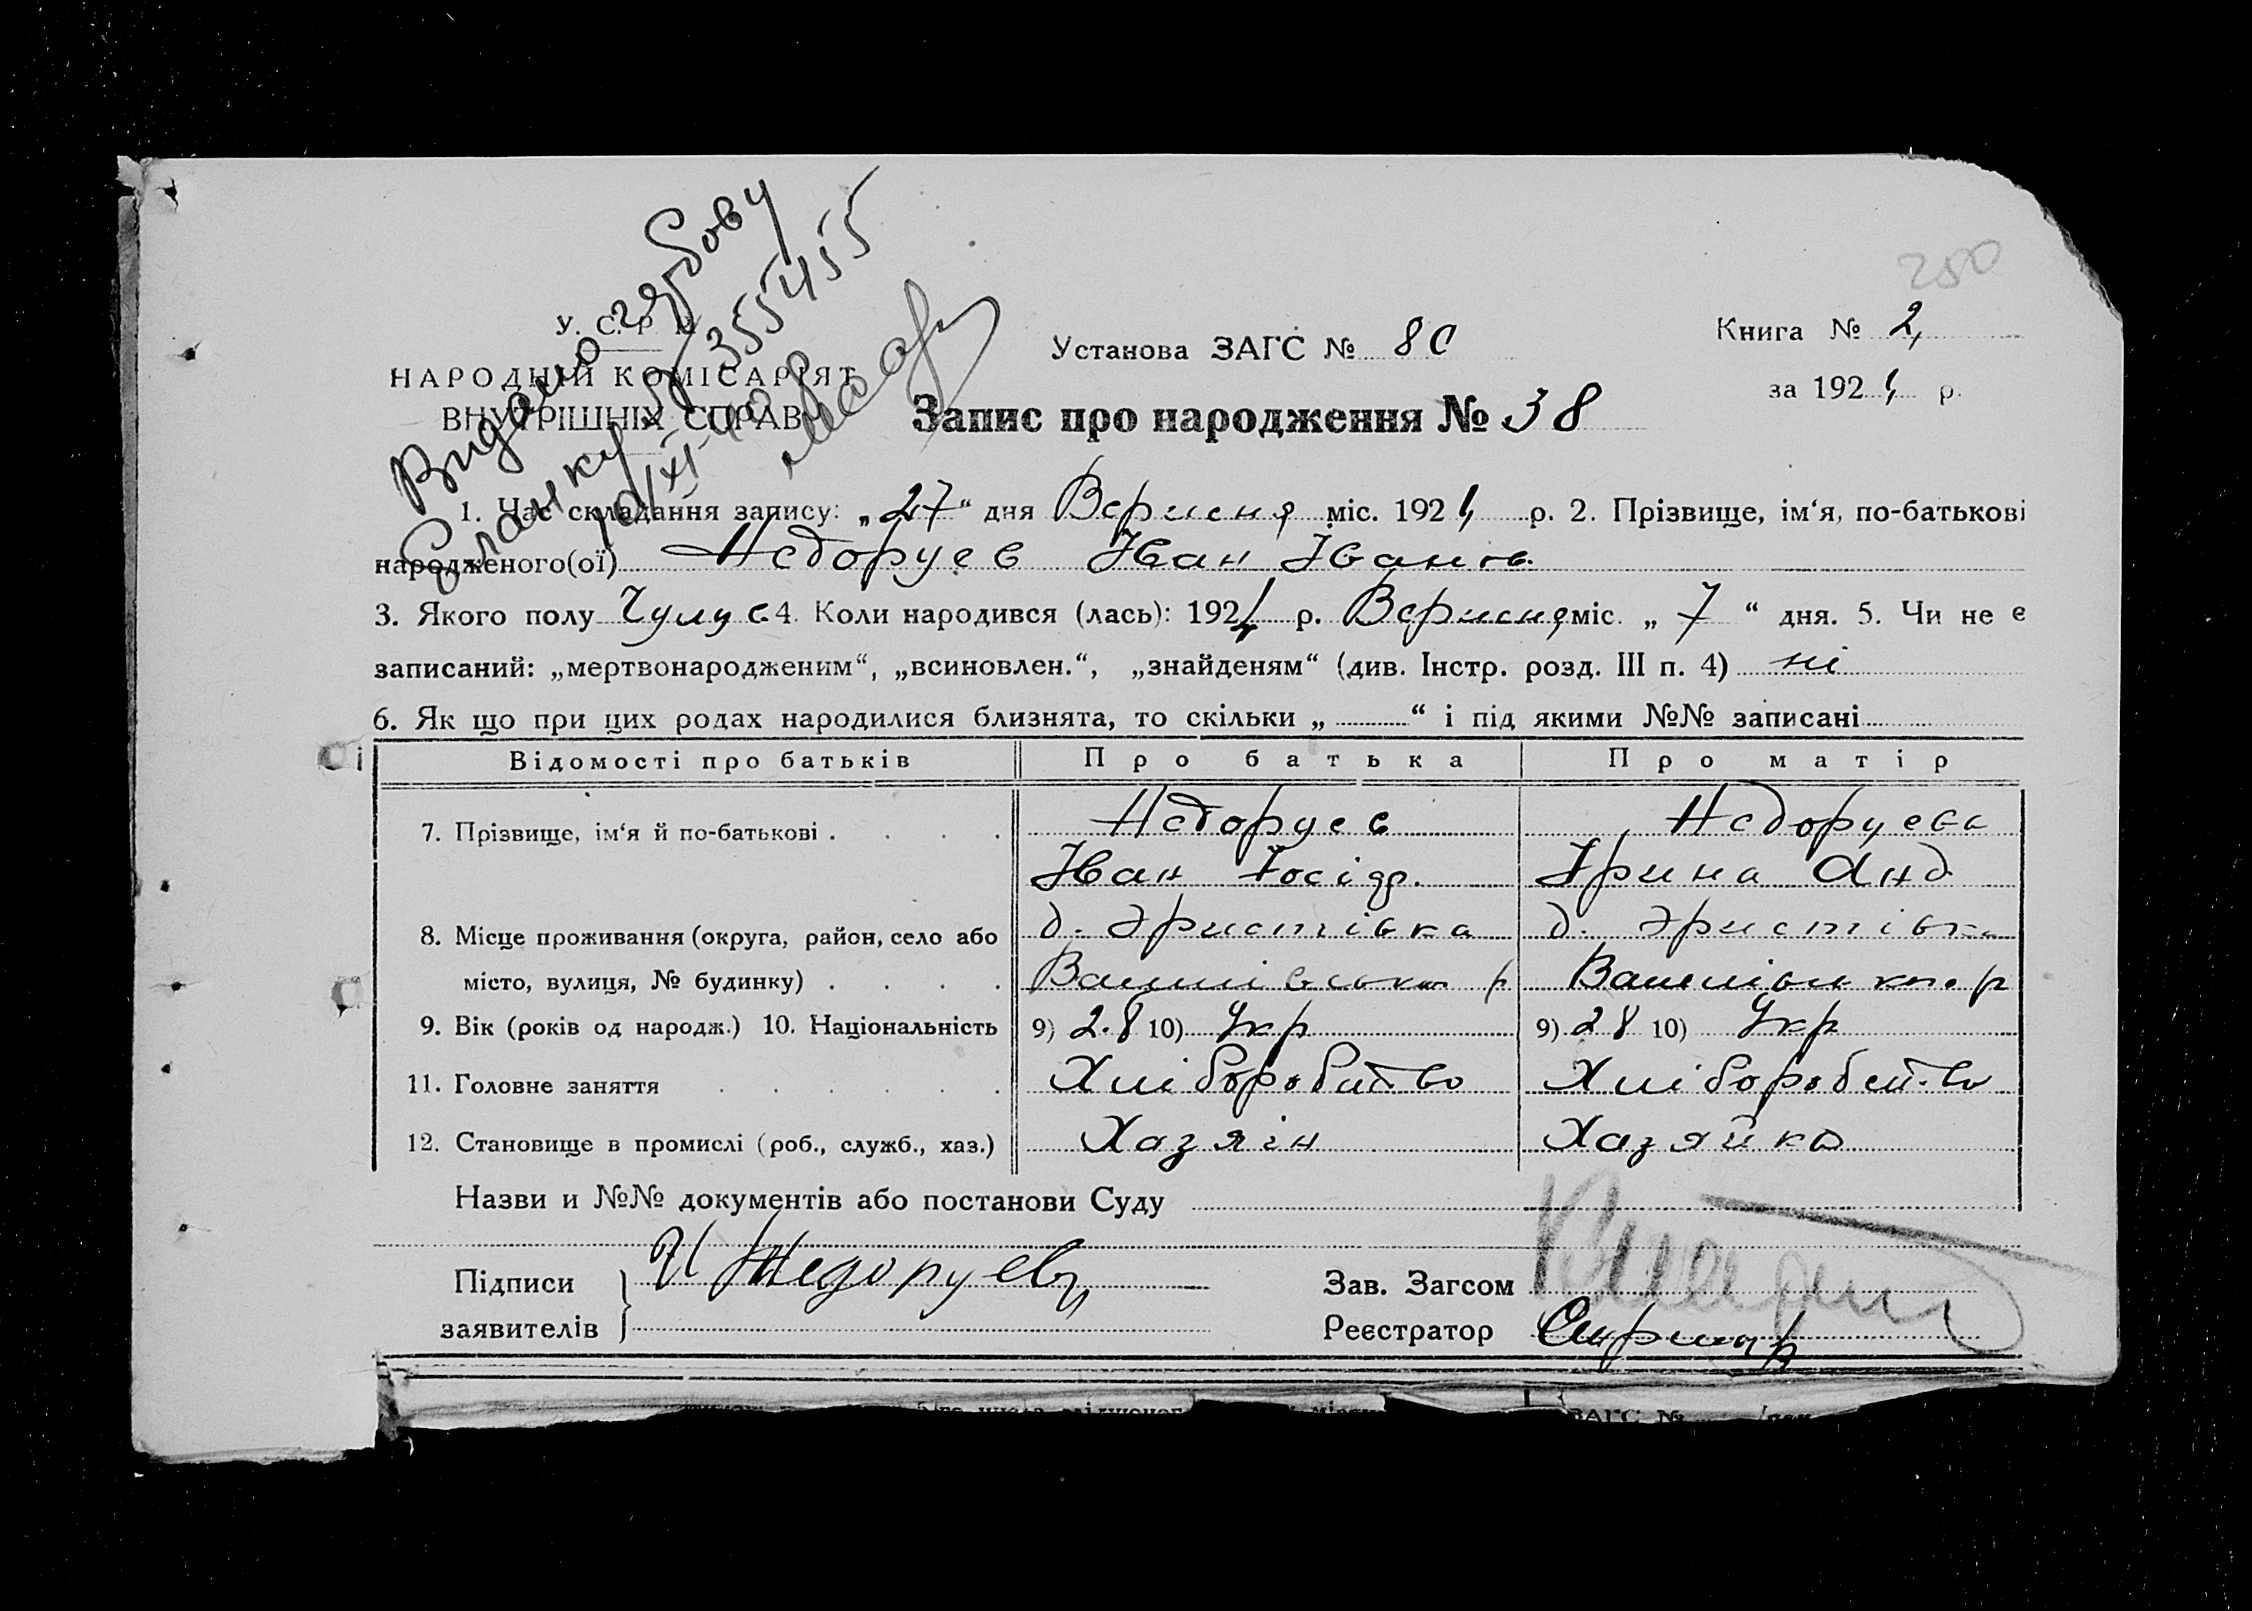 250
Видано гербову
бланку № 355455
10/XI-40 р
У. С. Р. Р.
НАРОДНІЙ КОМІСАРІЯТ
ВНУТРІШНІХ СПРАВ
Установа ЗАГС № 80
Книга № 2
за 1924 р.
Запис про народження № 38
1. Час складання запису: „27“ дня Вересня міс. 1924 р. 2. Прізвище, ім‘я, по-батькові
народженого(ої) Недоруєв Іван Іванов.
3. Якого полу Чулує. 4. Коли народився (лась): 1924 р. Вересня міс. „ 7 “ дня. 5. Чи не є
записаний: „мертвонародженим“, „всиновлен.“, „знайденям“ (див. Інстр. розд. III п. 4) ні
6. Як що при цих родах народилися близнята, то скільки „ “ і під якими №№ записані
Відомості про батьків Про батька Про матір
7. Прізвище, ім‘я й по-батькові . . . . Недоруєв Недоруєва
Іван Йосіфр. Ірина Анд
8. Місце проживання (округа, район, село або д. Эристівка д. Эристівка
місто, вулиця, № будинку) . . . . р р
9. Вік (років од народж.) 10. Національність 9) 28 10) Укр 9) 28 10) Укр
11. Головне заняття . . . . . . Хліборобство Хліборобство
12. Становище в промислі (роб., служб., хаз.) Хазяін Хазяйка
Назви и №№ документів або постанови Суду
Підписи И Недоруев Зав. Загсом
заявителів Реєстратор
ЗАГС №